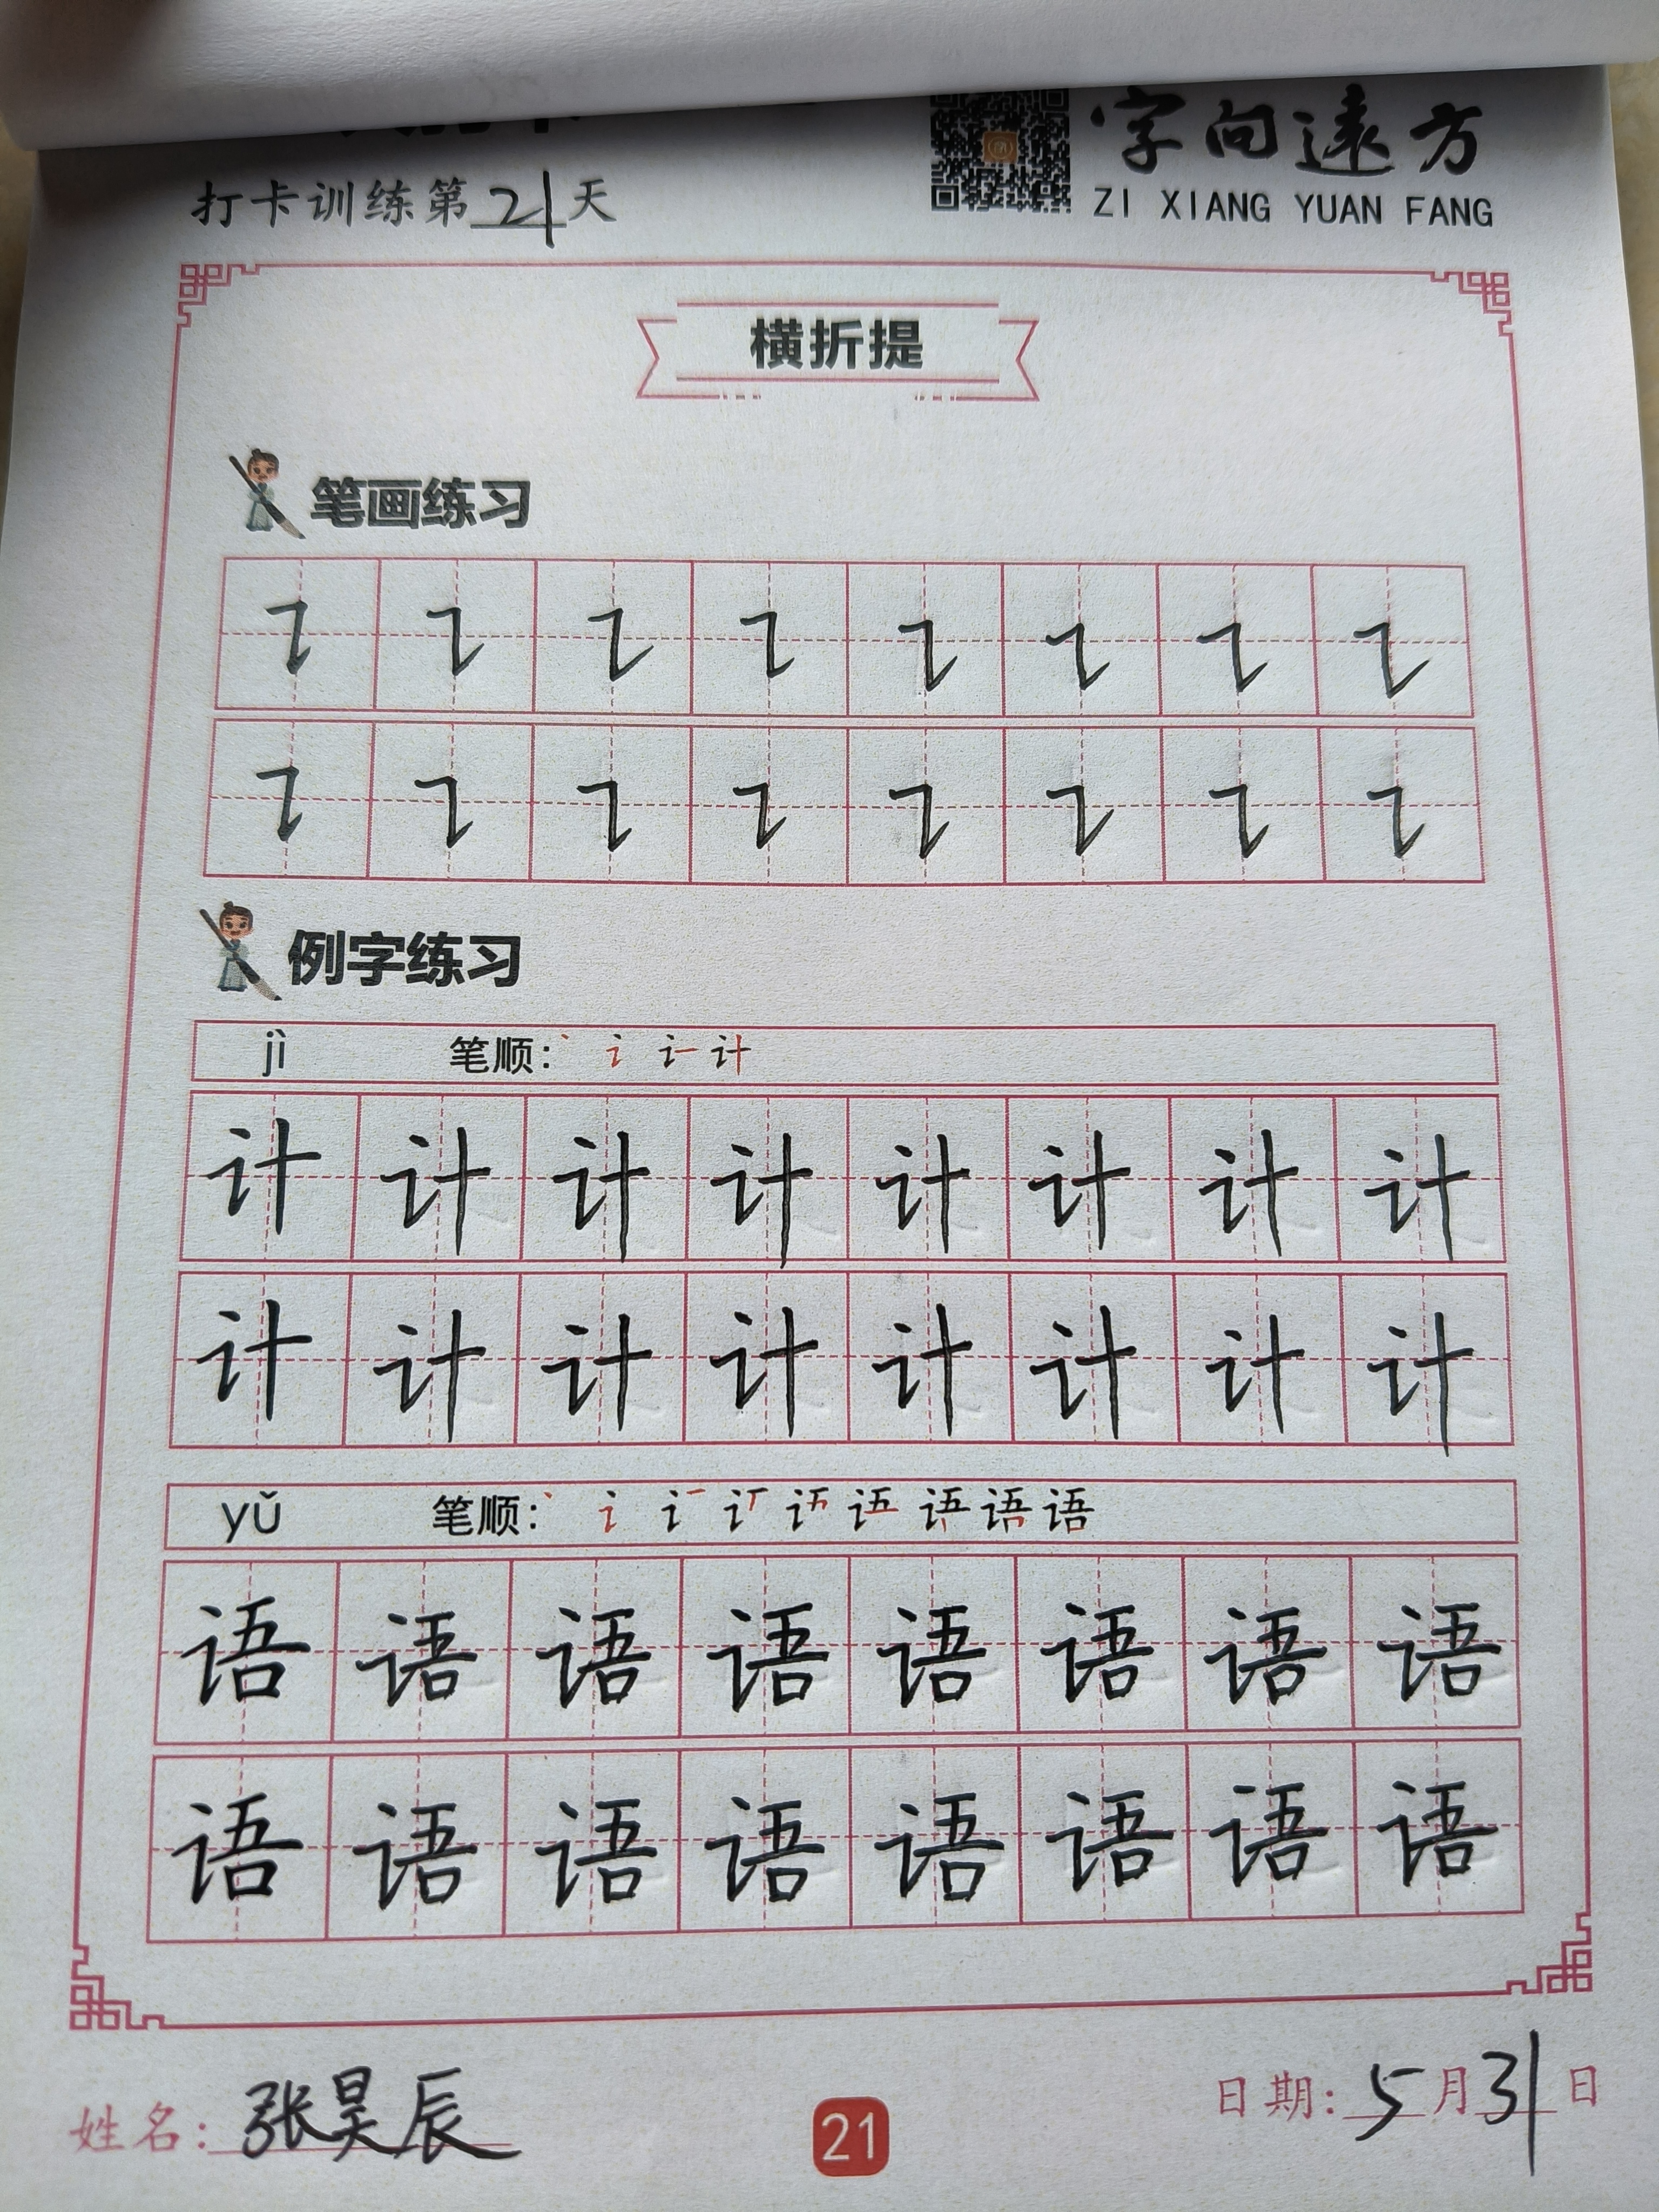 字向遠方
ZI XIANG YUAN FANG
打卡训练第21天
横折提
笔画练习
㇊ ㇊ ㇊ ㇊ ㇊ ㇊ ㇊ ㇊
㇊ ㇊ ㇊ ㇊ ㇊ ㇊ ㇊ ㇊
例字练习
jì 笔顺：
计 计 计 计 计 计 计 计
计 计 计 计 计 计 计 计
yǔ 笔顺： 语
语 语 语 语 语 语 语 语
语 语 语 语 语 语 语 语
姓名：张昊辰
21
日期：5月31日